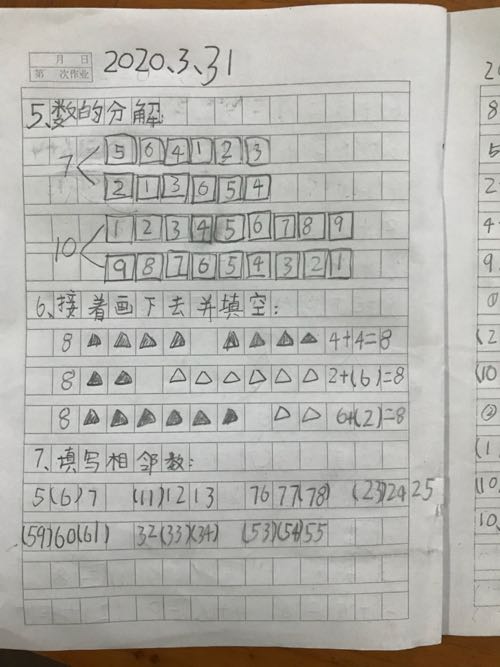 月 日
第 次作业
2020.3.31
5、数的分解:
7 5 6 4 1 2 3
2 1 3 6 5 4
10 1 2 3 4 5 6 7 8 9
9 8 7 6 5 4 3 2 1
6、接着画下去并填空:
8 4+4=8
8 2+(6)=8
8 6+(2)=8
7、填写相邻数:
5(6)7 (11)12 13 76 77(78) (23)24 25
(59)60(61) 32(33)(34) (53)(54)55
20
8
5
2
4
9
①
(2
(10
②
(1
(10
10